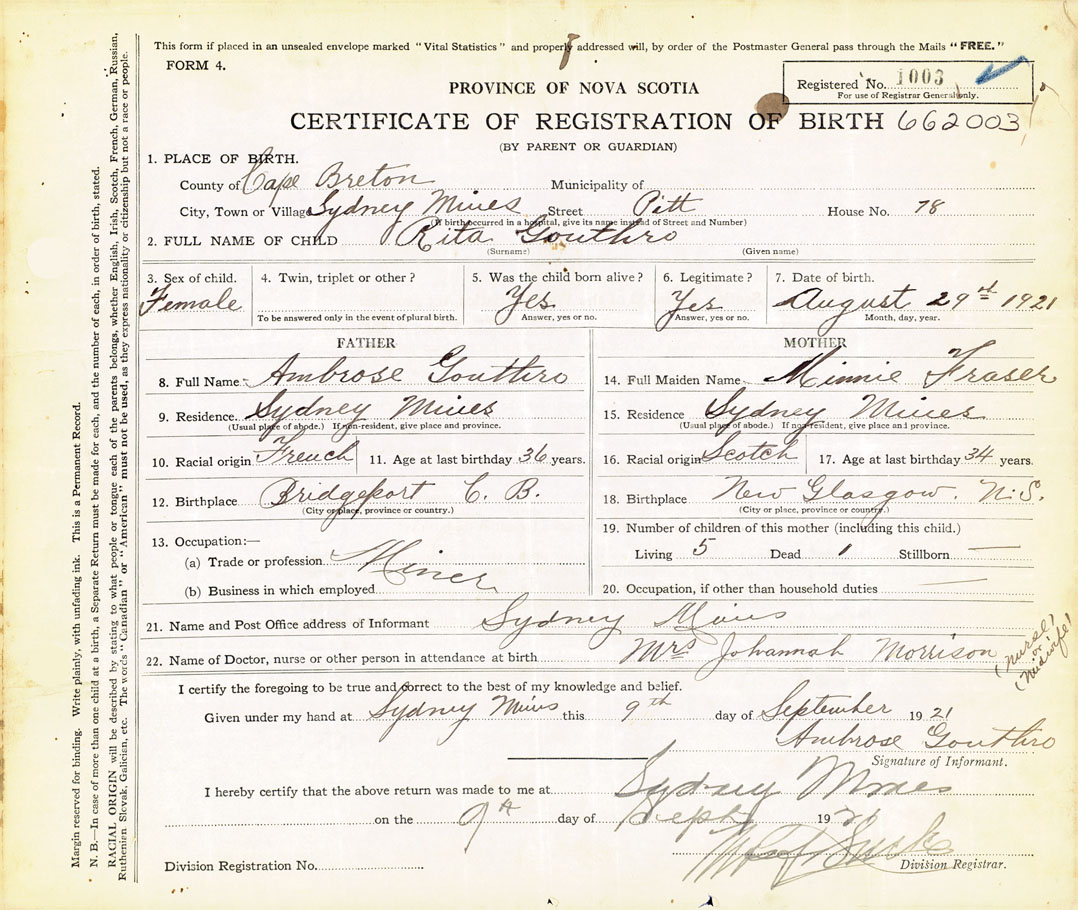 This form if placed in an unsealed envelope marked "Vital Statistics" and properly addressed will, by order of the Postmaster General pass through the Mails "FREE."
FORM 4.
Registered No. 1003
For use of Registrar General only.
PROVINCE OF NOVA SCOTIA
CERTIFICATE OF REGISTRATION OF BIRTH 662003
(BY PARENT OR GUARDIAN)
1. PLACE OF BIRTH.
County of Cape Breton Municipality of
City, Town or Village Sydney Mines Street Pitt House No. 78
(If birth occurred in a hospital, give its name instead of Street and Number)
2. FULL NAME OF CHILD Rita Gouthro
(Surname) (Given name)
3. Sex of child. 4. Twin, triplet or other? 5. Was the child born alive? 6. Legitimate? 7. Date of birth.
Female Yes Yes August 29th 1921
To be answered only in the event of plural birth. Answer, yes or no. Answer, yes or no. Month, day, year.
FATHER MOTHER
8. Full Name Ambrose Gouthro 14. Full Maiden Name Minnie Fraser
9. Residence. Sydney Mines 15. Residence Sydney Mines
(Usual place of abode.) If non-resident, give place and province. (Usual place of abode.) If non-resident, give place and province.
10. Racial origin French 11. Age at last birthday 36 years. 16. Racial origin Scotch 17. Age at last birthday 34 years.
12. Birthplace Bridgeport C. B. 18. Birthplace New Glasgow. N.S.
(City or place, province or country.) (City or place, province or country.)
13. Occupation:— 19. Number of children of this mother (including this child.)
(a) Trade or profession Miner Living 5 Dead 1 Stillborn —
(b) Business in which employed 20. Occupation, if other than household duties —
21. Name and Post Office address of Informant Sydney Mines
22. Name of Doctor, nurse or other person in attendance at birth Mrs Johannah Morrison (nurse! or midwife!)
I certify the foregoing to be true and correct to the best of my knowledge and belief.
Given under my hand at Sydney Mines this 9th day of September 1921
Ambrose Gouthro
Signature of Informant.
I hereby certify that the above return was made to me at Sydney Mines
on the 9th day of Sept 1921
Division Registration No. Division Registrar.
Margin reserved for binding. Write plainly, with unfading ink. This is a Permanent Record.
N. B.—In case of more than one child at a birth, a Separate Return must be made for each, and the number of each, in order of birth, stated.
RACIAL ORIGIN will be described by stating to what people or tongue each of the parents belongs, whether English, Irish, Scotch, French, German, Russian,
Ruthenian, Slovak, Galician, etc. The words "Canadian" or "American" must not be used, as they express nationality or citizenship but not a race or people.